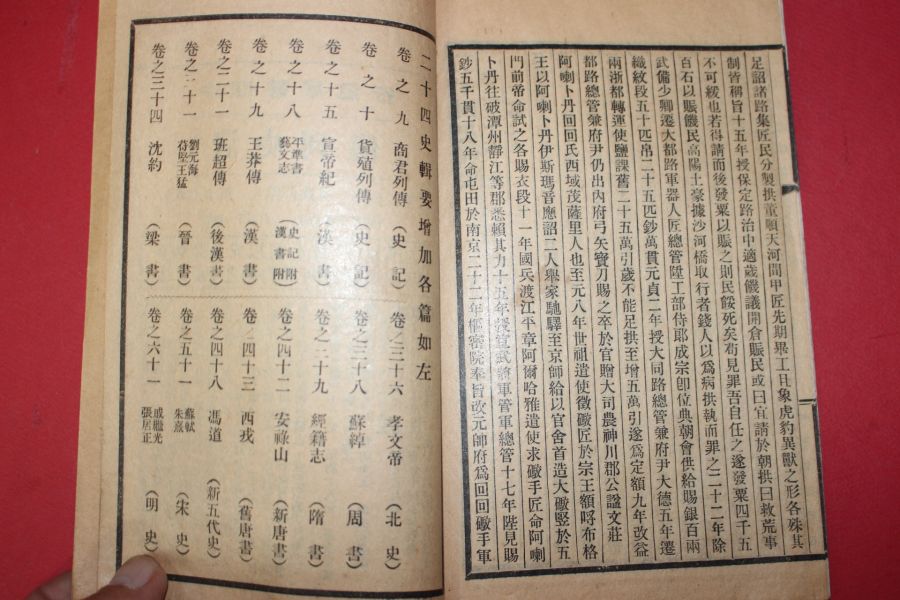 足詔諸路集匠民分製拱董順天河間甲匠先期畢工且象虎豹異獸之形各殊其
制皆稱旨十五年授保定路治中適歲饑議開倉賑民或曰宜請於朝拱曰救荒事
不可緩也若得請而後發粟以賑之則民餒死矣苟見罪吾自任之遂發粟四千五
百石以賑饑民高陽土豪據沙河橋取行者錢人以爲病拱執而罪之二十二年除
武備少卿遷大都路軍器人匠總管陞工部侍郎成宗卽位典朝會供給賜銀百兩
織紋段五十匹帛二十五匹鈔萬貫元貞二年授大同路總管兼府尹大德五年遷
兩浙都轉運使鹽課舊二十五萬引歲不能足拱至增五萬引遂爲定額九年改益
都路總管兼府尹仍出內府弓矢寶刀賜之卒於官贈大司農神川郡公諡文莊
阿喇卜丹回回氏西域茂薩里人也至元八年世祖遣使徵礮匠於宗王額呼布格
王以阿喇卜丹伊斯瑪音應詔二人舉家馳驛至京師給以官舍首造大礮竪於五
門前帝命試之各賜衣段十一年國兵渡江平章阿爾哈雅遣使求礮手匠命阿喇
卜丹往破潭州靜江等郡悉賴其力十五年授宣武將軍管軍總管十七年陛見賜
鈔五千貫十八年命屯田於南京二十二年樞密院奉旨改元帥府爲回回礮手軍
二十四史輯要增加各篇如左
卷之九 商君列傳 (史記)
卷之十 貨殖列傳 (史記)
卷之十五 宣帝紀 (漢書)
卷之十八 平準書 藝文志 (史記附 漢書附)
卷之十九 王莽傳 (漢書)
卷之二十一 班超傳 (後漢書)
卷之二十一 劉元海 苻堅王猛 (晉書)
卷之三十四 沈約 (梁書)
卷之三十六 孝文帝 (北史)
卷之三十八 蘇綽 (周書)
卷之三十九 經籍志 (隋書)
卷之四十二 安祿山 (新唐書)
卷之四十三 西戎 (舊唐書)
卷之四十八 馮道 (新五代史)
卷之五十一 蘇軾 朱熹 (宋史)
卷之六十一 戚繼光 張居正 (明史)